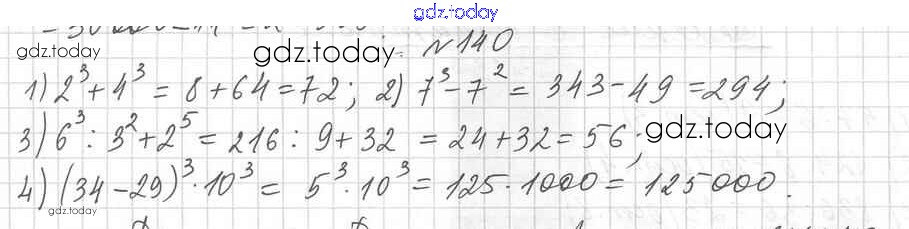 gdz.today
gdz.today gdz.today № 140
1) 2³ + 4³ = 8 + 64 = 72; 2) 7³ - 7² = 343 - 49 = 294;
3) 6³ : 3² + 2⁵ = 216 : 9 + 32 = 24 + 32 = 56; gdz.today
4) (34 - 29)³ · 10³ = 5³ · 10³ = 125 · 1000 = 125000.
gdz.today